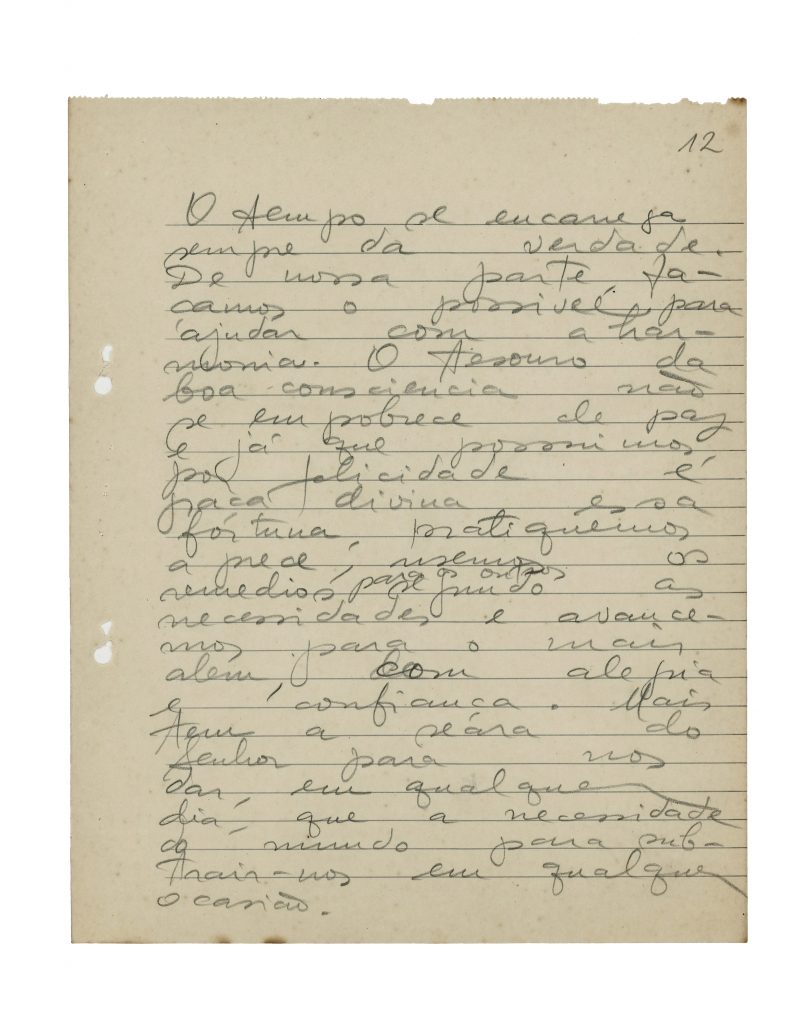 12
O tempo se encarrega
sempre da verdade.
De nossa parte fa-
camos o possivel para
ajudár com a har-
monia. O tesouro da
boa consciencia não
se empobrece de paz
e já que possuimos,
por felicidade é
graça divina essa
fórtuna, pratiquemos
a prece, usemos os
remedios para os outros
segundo as
necessidades e avance-
mos para o mais
além, com alegria
e confianca. Mais
tem a seára do
Senhor para nos
dar, em qualquer
dia, que a necessidade
do mundo para sub-
trair-nos em qualquer
ocasião.